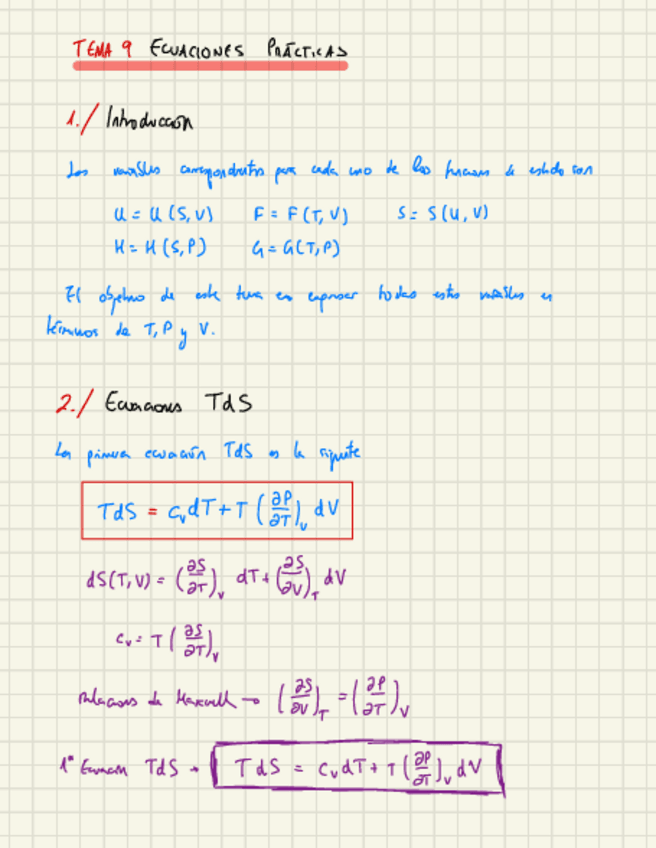 TEMA 9 ECUACIONES PRÁCTICAS
1./ Introducción
Las variables correspondientes para cada uno de las funciones de estado son
U = U(S,V) F = F(T,V) S = S(U,V)
H = H(S,P) G = G(T,P)
El objetivo de este tema es expresar todas estas variables en
términos de T, P y V.
2./ Ecuaciones TdS
La primera ecuación TdS es la siguiente
TdS = c_v dT + T (∂P/∂T)_v dV
dS(T,V) = (∂S/∂T)_V dT + (∂S/∂V)_T dV
c_v = T (∂S/∂T)_V
Relaciones de Maxwell → (∂S/∂V)_T = (∂P/∂T)_V
1ª Ecuación TdS → TdS = c_v dT + T (∂P/∂T)_V dV